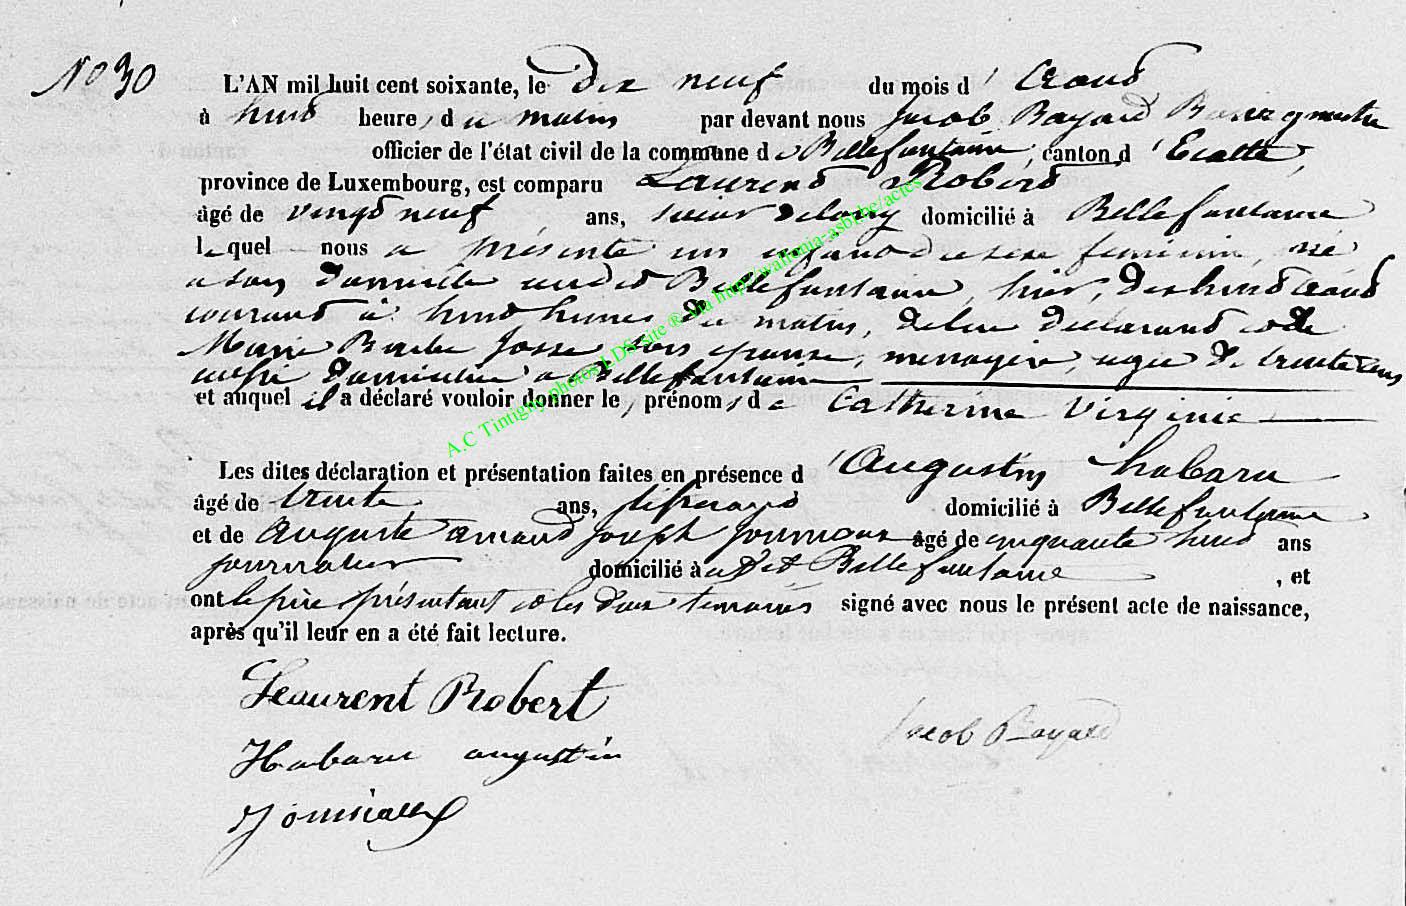 No 30
L'AN mil huit cent soixante, le dix neuf du mois d'Aout
à huit heures du matin par devant nous Jacob Bayard Bourgmestre
officier de l'état civil de la commune de Bellefontaine, canton d'Etalle,
province de Luxembourg, est comparu Laurent Robert
âgé de vingt neuf ans, scieur de long domicilié à Bellefontaine
lequel nous a présenté un enfant du sexe feminin, né
a son domicile audit Bellefontaine, hier, dix huit aout
courant à huit heures du matin, de lui déclarant et de
Marie Barbe Josse son épouse, menagère, agée de trente ans
aussi domiciliée à Bellefontaine
et auquel il a déclaré vouloir donner les prénoms de Catherine Virginie
Les dites déclaration et présentation faites en présence d'Augustin habaru
âgé de trente ans, domicilié à Bellefontaine
et de Auguste amand joseph âgé de cinquante huit ans
journalier domicilié à udit Bellefontaine, et
ont le père présentant et les deux temoins signé avec nous le présent acte de naissance,
après qu'il leur en a été fait lecture.
Laurent Robert
Jacob Bayard
Habaru augustin
A.C Tintigny photos LDS site ® via http://wallonia-asbl.be/actes